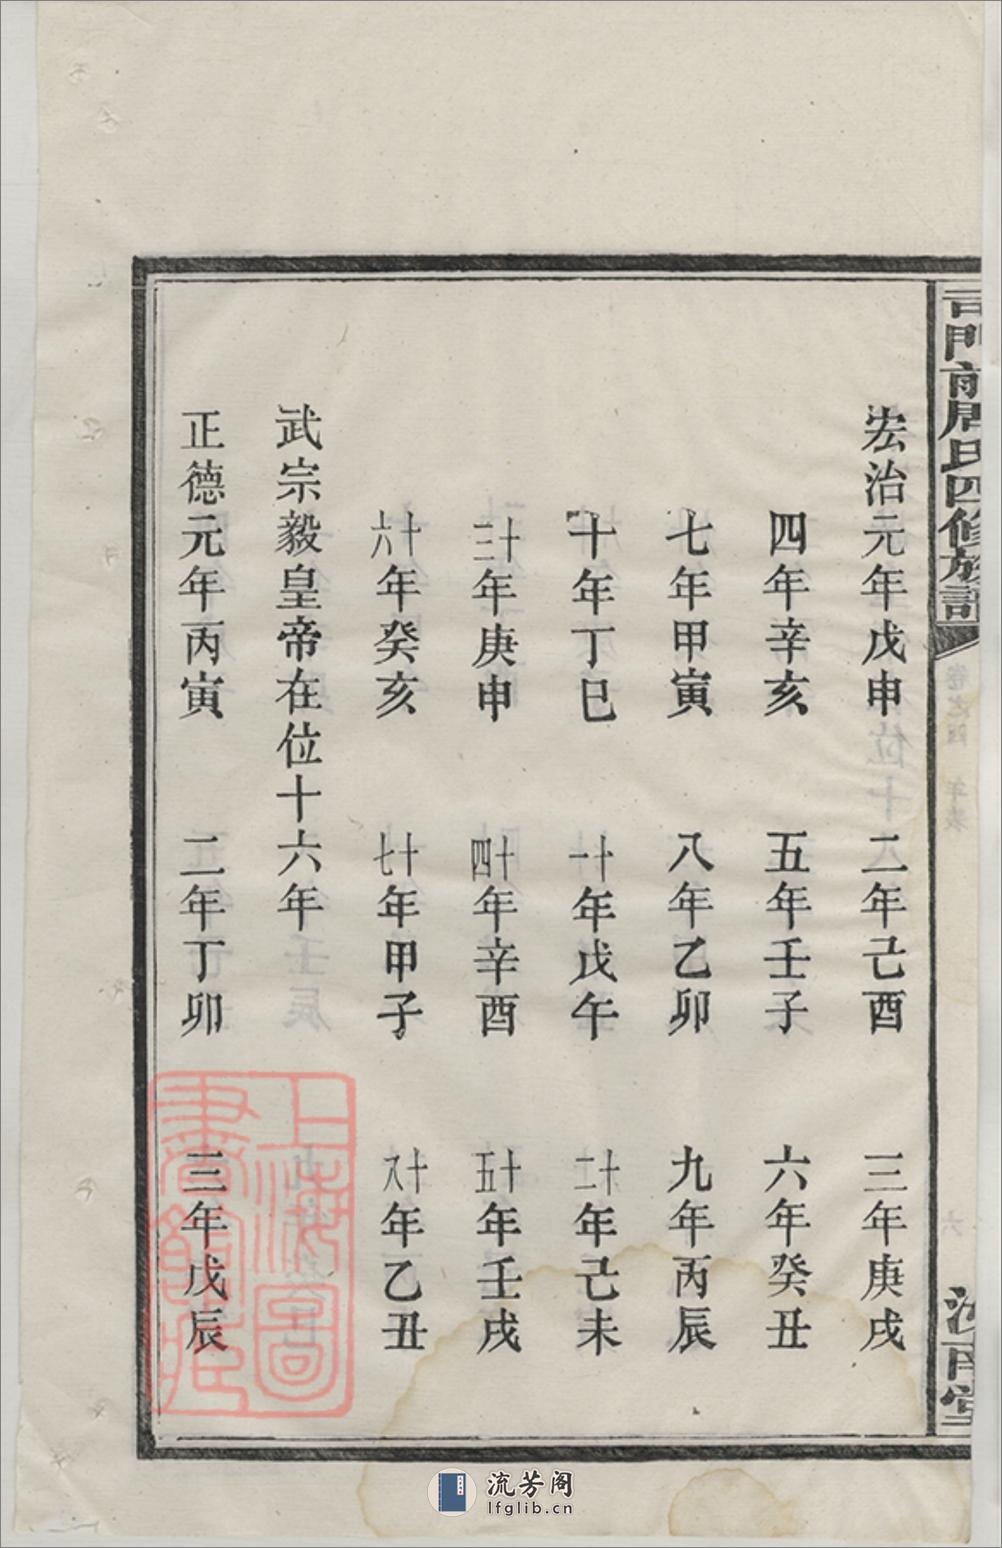 司門前周氏四修族譜
汝南堂
宏治元年戊申 二年己酉 三年庚戌
四年辛亥 五年壬子 六年癸丑
七年甲寅 八年乙卯 九年丙辰
十年丁巳 十一年戊午 十二年己未
十三年庚申 十四年辛酉 十五年壬戌
十六年癸亥 十七年甲子 十八年乙丑
武宗毅皇帝在位十六年
正德元年丙寅 二年丁卯 三年戊辰
上海圖
書館藏
流芳阁
lfglib.cn